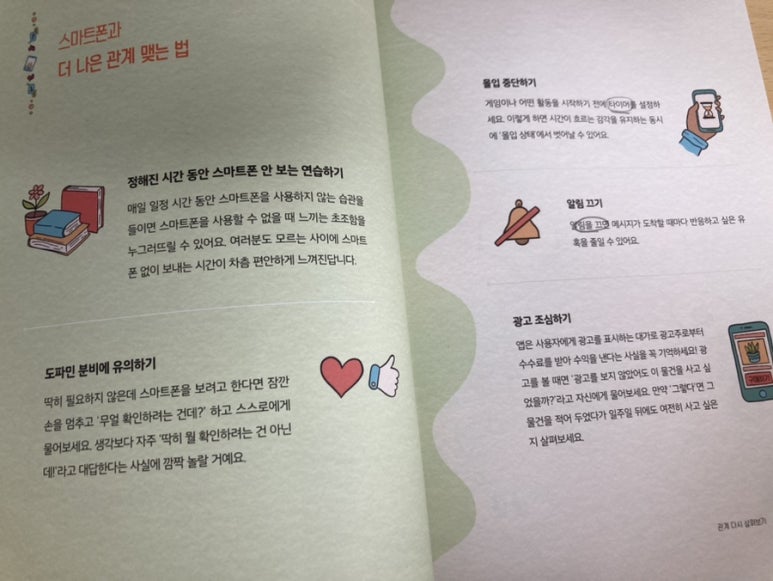 스마트폰과
더 나은 관계 맺는 법
정해진 시간 동안 스마트폰 안 보는 연습하기
매일 일정 시간 동안 스마트폰을 사용하지 않는 습관을
들이면 스마트폰을 사용할 수 없을 때 느끼는 초조함을
누그러뜨릴 수 있어요. 여러분도 모르는 사이에 스마트
폰 없이 보내는 시간이 차츰 편안하게 느껴진답니다.
도파민 분비에 유의하기
딱히 필요하지 않은데 스마트폰을 보려고 한다면 잠깐
손을 멈추고 ‘무얼 확인하려는 건데?’ 하고 스스로에게
물어보세요. 생각보다 자주 ‘딱히 뭘 확인하려는 건 아닌
데!’라고 대답한다는 사실에 깜짝 놀랄 거예요.
몰입 중단하기
게임이나 어떤 활동을 시작하기 전에 타이머를 설정하
세요. 이렇게 하면 시간이 흐르는 감각을 유지하는 동시
에 ‘몰입 상태’에서 벗어날 수 있어요.
알림 끄기
알림을 끄면 메시지가 도착할 때마다 반응하고 싶은 유
혹을 줄일 수 있어요.
광고 조심하기
앱은 사용자에게 광고를 표시하는 대가로 광고주로부터
수수료를 받아 수익을 낸다는 사실을 꼭 기억하세요! 광
고를 볼 때면 ‘광고를 보지 않았어도 이 물건을 사고 싶
었을까?’라고 자신에게 물어보세요. 만약 ‘그렇다’면 그
물건을 적어 두었다가 일주일 뒤에도 여전히 사고 싶은
지 살펴보세요.
구매하기
관계 다시 살펴보기